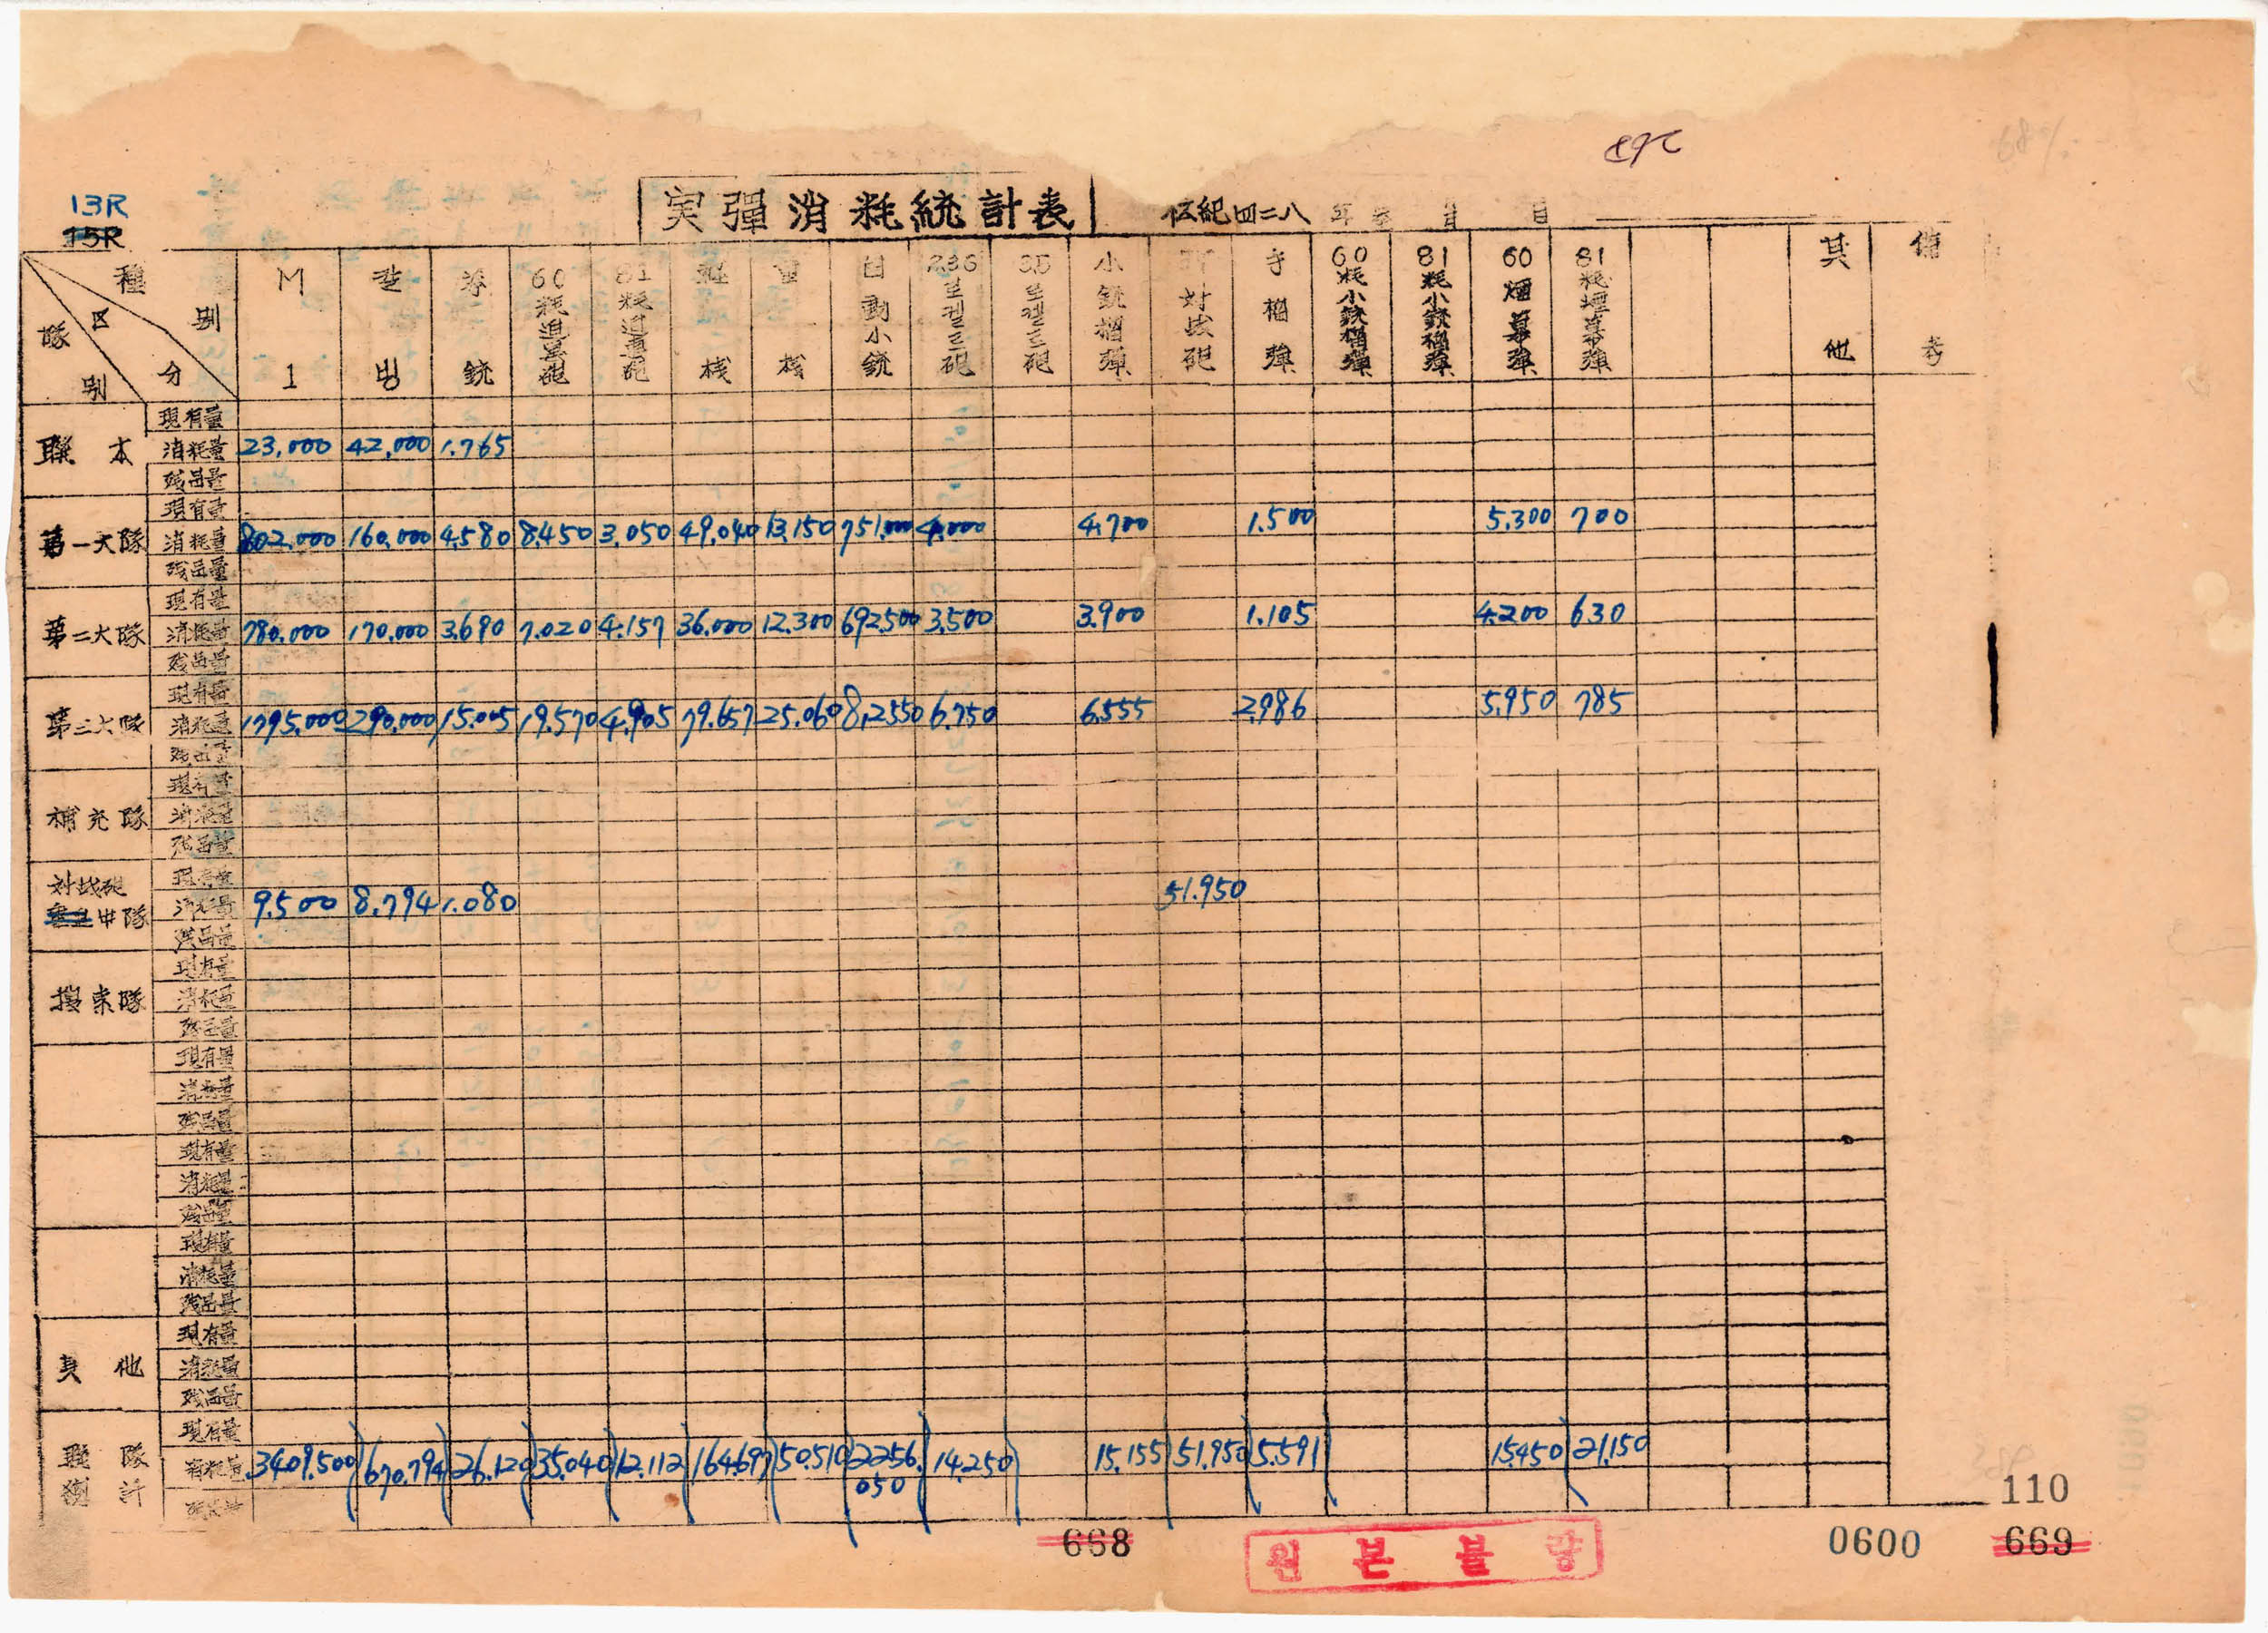 13R
15R
実彈消耗統計表
檀紀四二八 年 月 日
種別 区分 隊別
M1
칼빙
拳銃
60粍迫擊砲
81粍迫擊砲
軽機
重機
自動小銃
2.36로켙트砲
3.5로켙트砲
小銃榴彈
57対战砲
手榴彈
60粍小銃榴彈
81粍小銃榴彈
60煙幕彈
81粍煙幕彈
其他
備考
聯本
現有量
消耗量 23,000 42,000 1.765
残品量
第一大隊
現有量
消耗量 802.000 160,000 4.580 8.450 3.050 49.040 13.150 751.000 4.000 4.700 1.500 5.300 700
残品量
第二大隊
現有量
消耗量 780.000 170.000 3.690 7.020 4.157 36.000 12.300 692.500 3.500 3.900 1.105 4.200 630
残品量
第三大隊
現有量
消耗量 1795.000 290.000 15.005 19.570 4.905 79.657 25.060 8,2550 6.750 6.555 2.986 5.950 785
残品量
補充隊
現有量
消耗量
残品量
対战砲
中隊
現有量
消耗量 9.500 8.794 1.080 51.950
残品量
搜索隊
現有量
消耗量
残品量
現有量
消耗量
残品量
現有量
消耗量
残品量
現有量
消耗量
残品量
其他
現有量
消耗量
残品量
聯隊
総計
現有量
消耗量 3409.500 670.794 26.120 35.040 12.112 164.697 50.510 2256.050 14.250 15.155 51.950 5.591 15.450 21.150
110
668
원본불량
0600
669